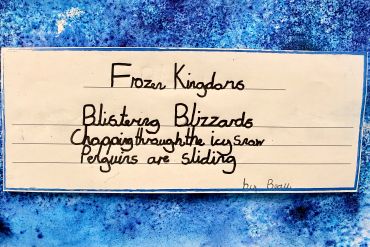 Frozen Kingdoms
Blistering Blizzards
Chopping through the icy snow
Penguins are sliding
by